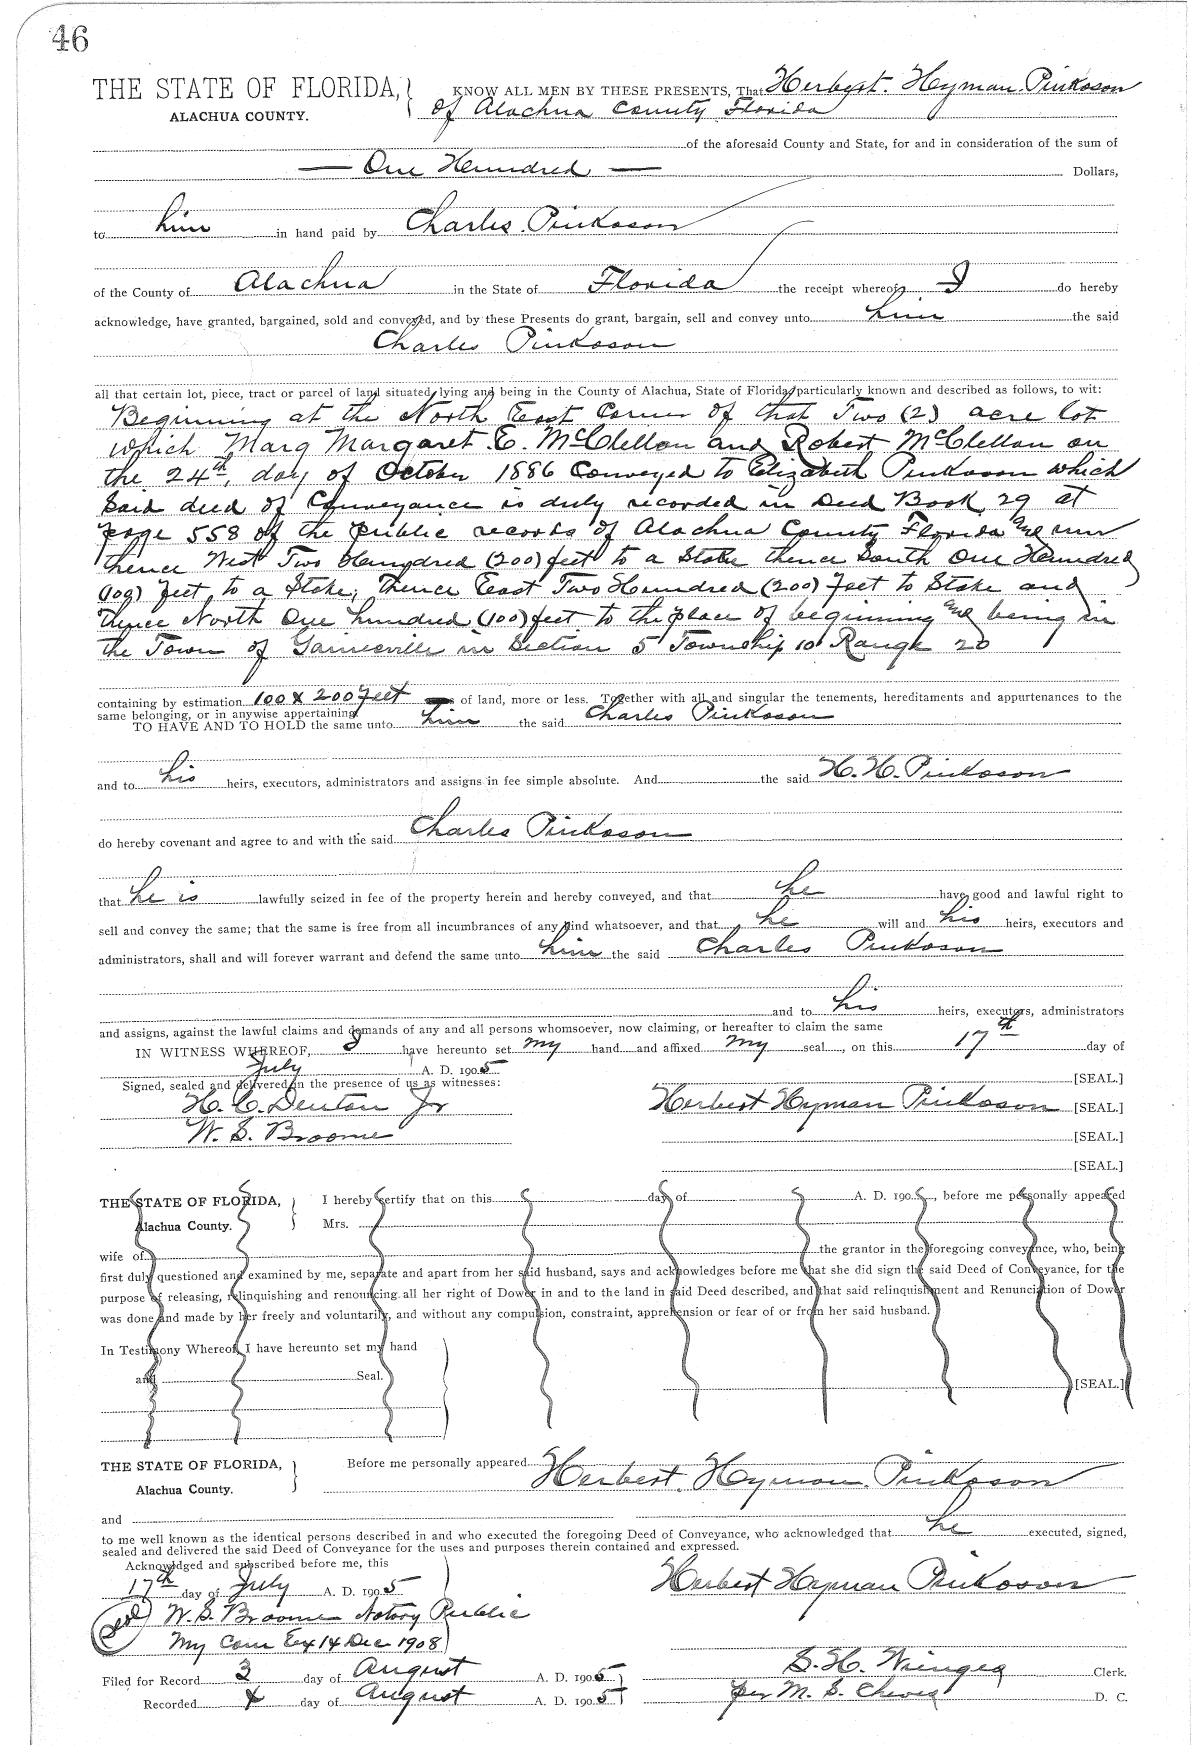 46
THE STATE OF FLORIDA, KNOW ALL MEN BY THESE PRESENTS, That Herbert. Heyman. Pinkoson
ALACHUA COUNTY. of Alachua County Florida
of the aforesaid County and State, for and in consideration of the sum of
— One Hundred — Dollars,
to him in hand paid by Charles. Pinkoson
of the County of Alachua in the State of Florida the receipt whereof I do hereby
acknowledge, have granted, bargained, sold and conveyed, and by these Presents do grant, bargain, sell and convey unto him the said
Charles Pinkoson
all that certain lot, piece, tract or parcel of land situated, lying and being in the County of Alachua, State of Florida, particularly known and described as follows, to wit:
Beginning at the North East Corner of that Two (2) acre lot
which Marg Margaret E. McClellan and Robert McClellan on
the 24th, day of October 1886 Conveyed to Elizabeth Pinkoson which
said deed of Conveyance is duly recorded in Deed Book 29 at
page 558 of the public records of Alachua County Florida and run
thence West Two Hundred (200) feet to a Stake thence South One Hundred
(100) feet to a Stake, thence East Two Hundred (200) feet to Stake and
thence North One hundred (100) feet to the place of beginning and being in
the Town of Gainesville in Section 5 Township 10 Range 20
containing by estimation 100 x 200 feet of land, more or less. Together with all and singular the tenements, hereditaments and appurtenances to the
same belonging, or in anywise appertaining
TO HAVE AND TO HOLD the same unto him the said Charles Pinkoson
and to his heirs, executors, administrators and assigns in fee simple absolute. And the said H. H. Pinkoson
do hereby covenant and agree to and with the said Charles Pinkoson
that he is lawfully seized in fee of the property herein and hereby conveyed, and that he have good and lawful right to
sell and convey the same; that the same is free from all incumbrances of any kind whatsoever, and that he will and his heirs, executors and
administrators, shall and will forever warrant and defend the same unto him the said Charles Pinkoson
and to his heirs, executors, administrators
and assigns, against the lawful claims and demands of any and all persons whomsoever, now claiming, or hereafter to claim the same
IN WITNESS WHEREOF, I have hereunto set my hand and affixed my seal, on this 17th day of
July A. D. 1905
Signed, sealed and delivered in the presence of us as witnesses: [SEAL.]
H. C. Denton Jr Herbert Hyman Pinkoson [SEAL.]
W. S. Broome [SEAL.]
[SEAL.]
THE STATE OF FLORIDA, I hereby certify that on this day of A. D. 190 , before me personally appeared
Alachua County. Mrs.
wife of the grantor in the foregoing conveyance, who, being
first duly questioned and examined by me, separate and apart from her said husband, says and acknowledges before me that she did sign the said Deed of Conveyance, for the
purpose of releasing, relinquishing and renouncing all her right of Dower in and to the land in said Deed described, and that said relinquishment and Renunciation of Dower
was done and made by her freely and voluntarily, and without any compulsion, constraint, apprehension or fear of or from her said husband.
In Testimony Whereof, I have hereunto set my hand
and Seal. [SEAL.]
THE STATE OF FLORIDA, Before me personally appeared Herbert. Heyman. Pinkoson
Alachua County.
and
to me well known as the identical persons described in and who executed the foregoing Deed of Conveyance, who acknowledged that he executed, signed,
sealed and delivered the said Deed of Conveyance for the uses and purposes therein contained and expressed.
Acknowledged and subscribed before me, this
17th day of July A. D. 1905 Herbert Hyman Pinkoson
Seal W. S. Broome Notary Public
My Com Ex 14 Dec 1908
Filed for Record 3 day of August A. D. 1905 S. H. Wienges Clerk.
Recorded 4 day of August A. D. 1905 per M. S. Cheves D. C.